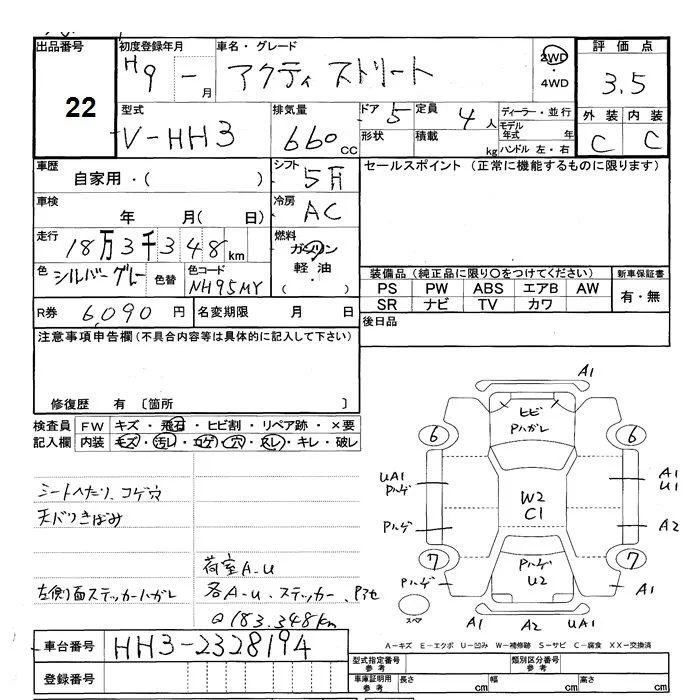 出品番号 初度登録年月 車名・グレード 評価点
22 H9 - 月 アクティ ストリート 2WD ・ 4WD 3.5
型式 排気量 ドア 5 定員 4人 ディーラー・並行 外装 内装
V-HH3 660 CC 形状 積載 kg モデル年式 年 C C
ハンドル 左・右
車歴 シフト セールスポイント (正常に機能するものに限ります)
自家用・( ) 5F
車検 冷房
年 月( 日) AC
走行 燃料
18万3千348km ガソリン
色 シルバーグレー 色替 色コード NH95MY 軽油・ ( )
装備品(純正品に限り○をつけてください) 新車保証書
PS PW ABS エアB AW 有・無
SR ナビ TV カワ
R券 6,090 円 名変期限 月 日 後日品
注意事項申告欄(不具合内容等は具体的に記入して下さい)
修復歴 有 〔箇所 〕
検査員 FW キズ・飛石・ヒビ割・リペア跡・×要
記入欄 内装 キズ・汚レ・コゲ・穴・スレ・キレ・破レ
シートへたり、コゲ穴
天バリきばみ
荷室A-U
左側面ステッカーハガレ 各A-U、ステッカー、
183.348km
A1
ヒビ
Pハガレ
6 6
UA1 A1
Pハゲ U1
W2
C1
Pハゲ A2
7 Pハゲ 7
Pハゲ U2 A1
スペア A1 A2 UA1
A-キズ E-エクボ U-凹み W-補修跡 S-サビ C-腐食 XX-交換済
車台番号 HH3-2328194
型式指定番号 参考 類別区分番号 参考
登録番号 車庫証明用 参考 長さ cm 幅 cm 高さ cm